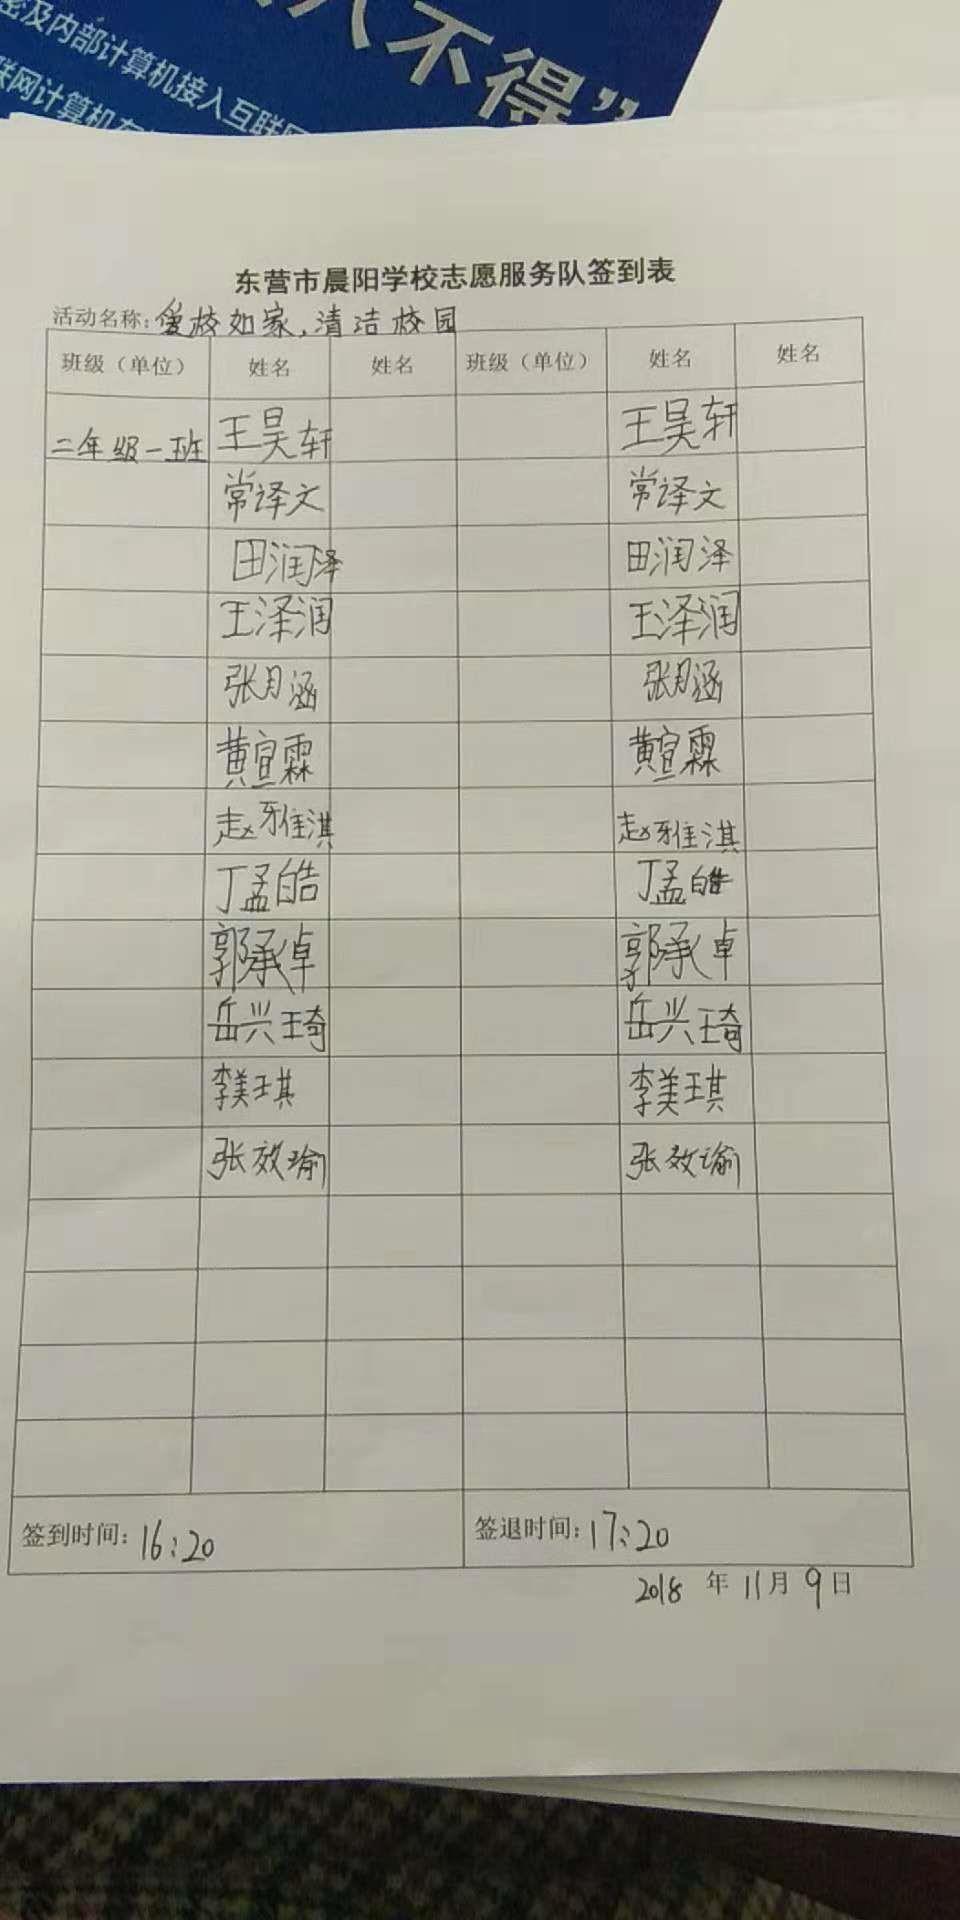 密及内部计算机接入互联网
联网计算机存
人不得”
东营市晨阳学校志愿服务队签到表
活动名称：爱校如家，清洁校园
班级（单位） 姓名 姓名 班级（单位） 姓名 姓名
二年级一班 王昊轩 王昊轩
常译文 常译文
田润泽 田润泽
王泽润 王泽润
张月涵 张月涵
黄宣霖 黄宣霖
赵雅淇 赵雅淇
丁孟皓 丁孟皓
郭承卓 郭承卓
岳兴琦 岳兴琦
李美琪 李美琪
张效瑜 张效瑜
签到时间：16:20 签退时间：17:20
2018 年 11 月 9 日